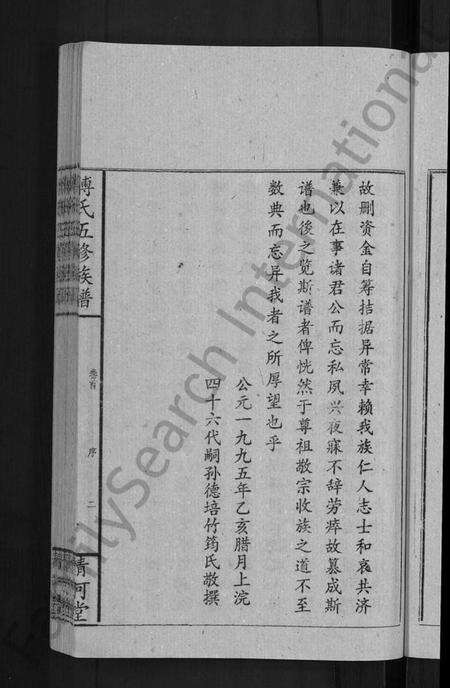 故刪資金自筹拮据异常幸赖我族仁人志士和衷共济
兼以在事诸君公而忘私夙兴夜寐不辞劳瘁故慕成斯
谱也後之览斯谱者俾恍然于尊祖敬宗收族之道不至
数典而忘异我者之所厚望也乎
公元一九九五年乙亥腊月上浣
四十六代嗣孙德培竹筠氏敬撰
傅氏五修族谱
卷首
序
二
清河堂
FamilySearch International